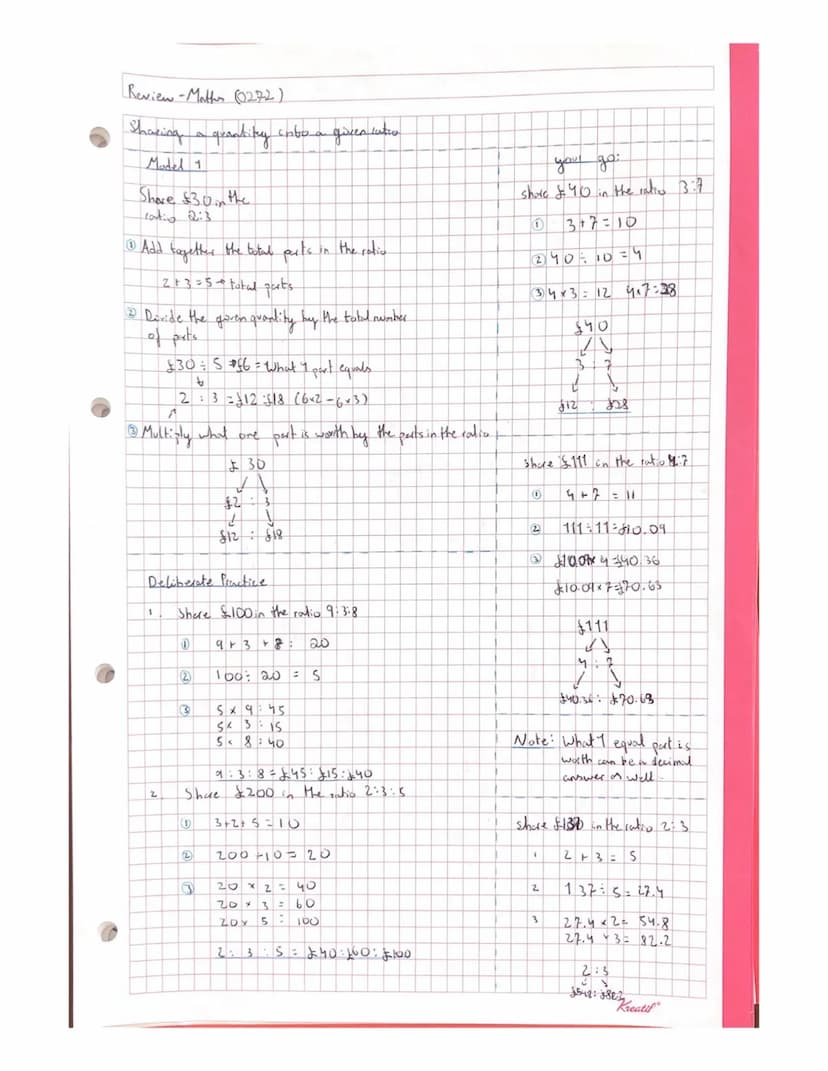 Review - Maths (0272)
Sharing a quantity into a given ratio
Model 1
Share £30 in the
ratio 2:3
① Add together the total parts in the ratio
2 + 3 = 5 → total parts
② Divide the given quantity by the total number
of parts
£30 ÷ 5 → £6 = What 1 part equals
2 : 3 = £12 : £18 (6×2 - 6×3)
③ Multiply what one part is worth by the parts in the ratio
£ 30
£2 : 3
£12 : £18
Deliberate Practice
1. Share £100 in the ratio 9:3:8
① 9 + 3 + 8 : 20
② 100 ÷ 20 = 5
③ 5 × 9 : 45
5 × 3 : 15
5 × 8 : 40
9 : 3 : 8 = £45 : £15 : £40
2. Share £200 in the ratio 2:3:5
① 3+2+5 = 10
② 200 ÷ 10 = 20
③ 20 × 2 = 40
20 × 3 = 60
20 × 5 = 100
2 : 3 : 5 = £40 : £60 : £100
your go:
share £40 in the ratio 3:7
① 3 + 7 = 10
② 40 ÷ 10 = 4
③ 4 × 3 = 12 4×7 = 28
£40
3 : 7
£12 : £28
share £111 in the ratio 4:7
① 4 + 7 = 11
② 111 ÷ 11 = £10.09
③ £10.09 × 4 = £40.36
£10.09 × 7 = £70.63
£111
4 : 7
£40.36 : £70.63
Note: What 1 equal part is
worth can be a decimal
answer as well.
share £137 in the ratio 2:3
1 2 + 3 = 5
2 137 ÷ 5 = 27.4
3 27.4 × 2 = 54.8
27.4 × 3 = 82.2
2 : 3
£54.8 : £82.2
Kreatif